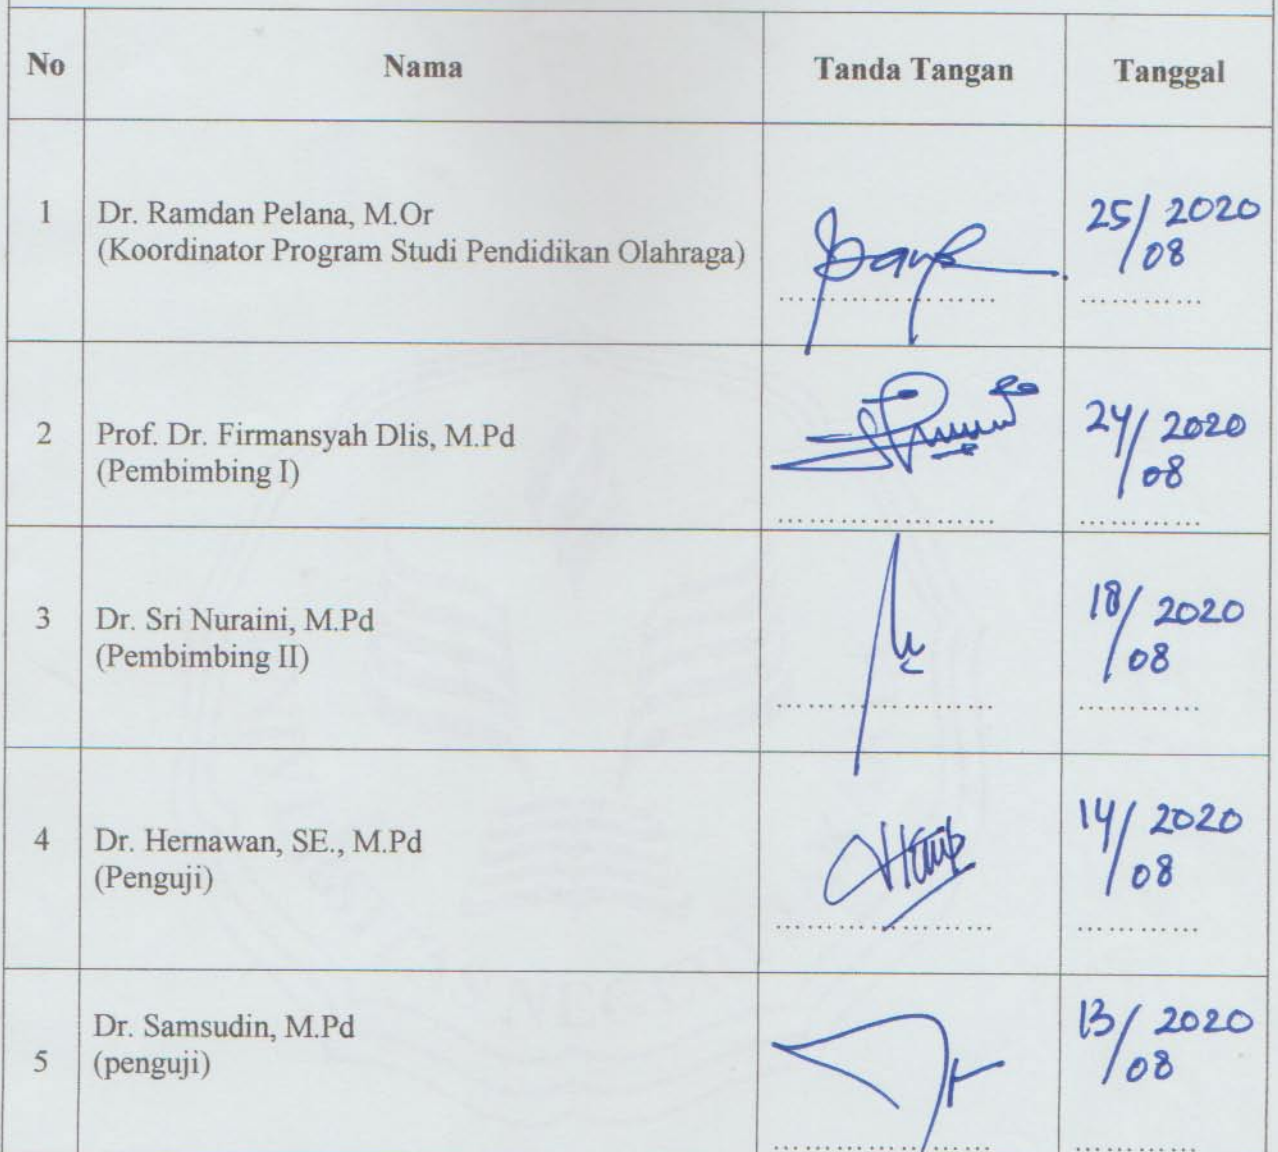 No Nama Tanda Tangan Tanggal
1 Dr. Ramdan Pelana, M.Or
(Koordinator Program Studi Pendidikan Olahraga)
25/ 2020
08
2 Prof. Dr. Firmansyah Dlis, M.Pd
(Pembimbing I)
24/ 2020
08
3 Dr. Sri Nuraini, M.Pd
(Pembimbing II)
18/ 2020
08
4 Dr. Hernawan, SE., M.Pd
(Penguji)
14/ 2020
08
5 Dr. Samsudin, M.Pd
(penguji)
13/ 2020
08